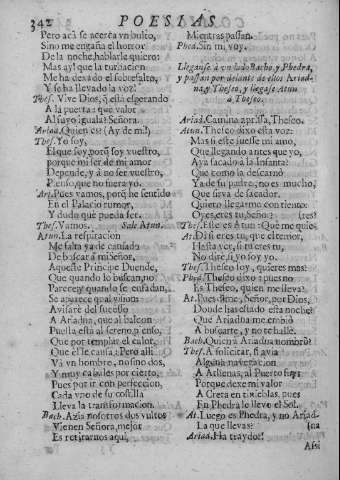 342 POESIAS
Pero acà se acerca vn bulto,
Sino me engaña el horror
De la noche, hablarle quiero:
Mas ay! que la turbacion
Me ha dexado el sobresalto,
Y se ha llevado la voz!
Thes. Vive Dios, q̃ està esperando
A la puerta: què valor
Al suyo iguala? Señora.
Ariad. Quien es? (Ay de mi!)
Thes. Yo soy,
El que soy, porq̃ soy vuestro,
porque mi ser de mi amor
Depende, y à no ser vuestro,
Pienso, que no fuera yo.
Ari. Pues vamos, porq̃ he sentido
En el Palacio rumor,
Y dudo què pueda ser.
Thes. Vamos. Sale Atun.
Atun. La respiracion
Me falta ya de cansado
De buscar à mi Señor,
Aqueste Principe Duende,
Que quando le buscan, no
Parece, y quando se enfadan,
Se aparece qual vision:
Avisarè del sucesso
A Ariadna, que al balcon
Puesta està al sereno, pienso,
Que por templar el calor,
Que èl le causa; Pero alli
Và vn hombre, no sino dos,
Y muy cabales por cierto,
Pues por ir con perfeccion,
Cada vno de su costilla
Lleva la transformacion.
Bach. Azia nosotros dos vultos
Vienen Señora, mejor
Es retirarnos aqui,
Mientras passan.
Phed. Sin mi, voy.
Lleganse à vn lado Bacho, y Phedra,
y passan por delante de ellos Ariad-
na, y Theseo, y llegase Atun
à Theseo.
Ariad. Camina aprissa, Theseo.
Atun. Theseo dixo esta voz:
Mas si este fuesse mi amo,
Que llegando antes que yo,
Aya sacado à la Infanta?
Que como la descarnò
Ya de su padre, no es mucho,
Que sirva de sacador.
Quiero llegarme con tiento:
Oyes, eres tu, Señor? (res?
Thes. Este es Atun: Què me quie-
At. Di si eres tu, que el temor,
Hasta ver, si tu eres tu,
No dirè, si yo soy yo.
Thes. Theseo soy, quieres mas?
Phed. Theseo dixo: pues no
Es Theseo, quien me lleva?
At. Pues dime, Señor, por Dios,
Donde has estado esta noche?
Que Ariadna me embiò
A buscarte, y no te hallè.
Bach. Quien à Ariadna nombrò?
Thes. A solicitar, si avia
Alguna navegacion
A Athenas, al Puerto fuy:
Porque dexe mi valor
A Creta en tinieblas, pues
En Phedra le llevo el Sol.
At. Luego es Phedra, y no Ariad-
La que llevas? (na
Ariad. Ha traydor!
Assi